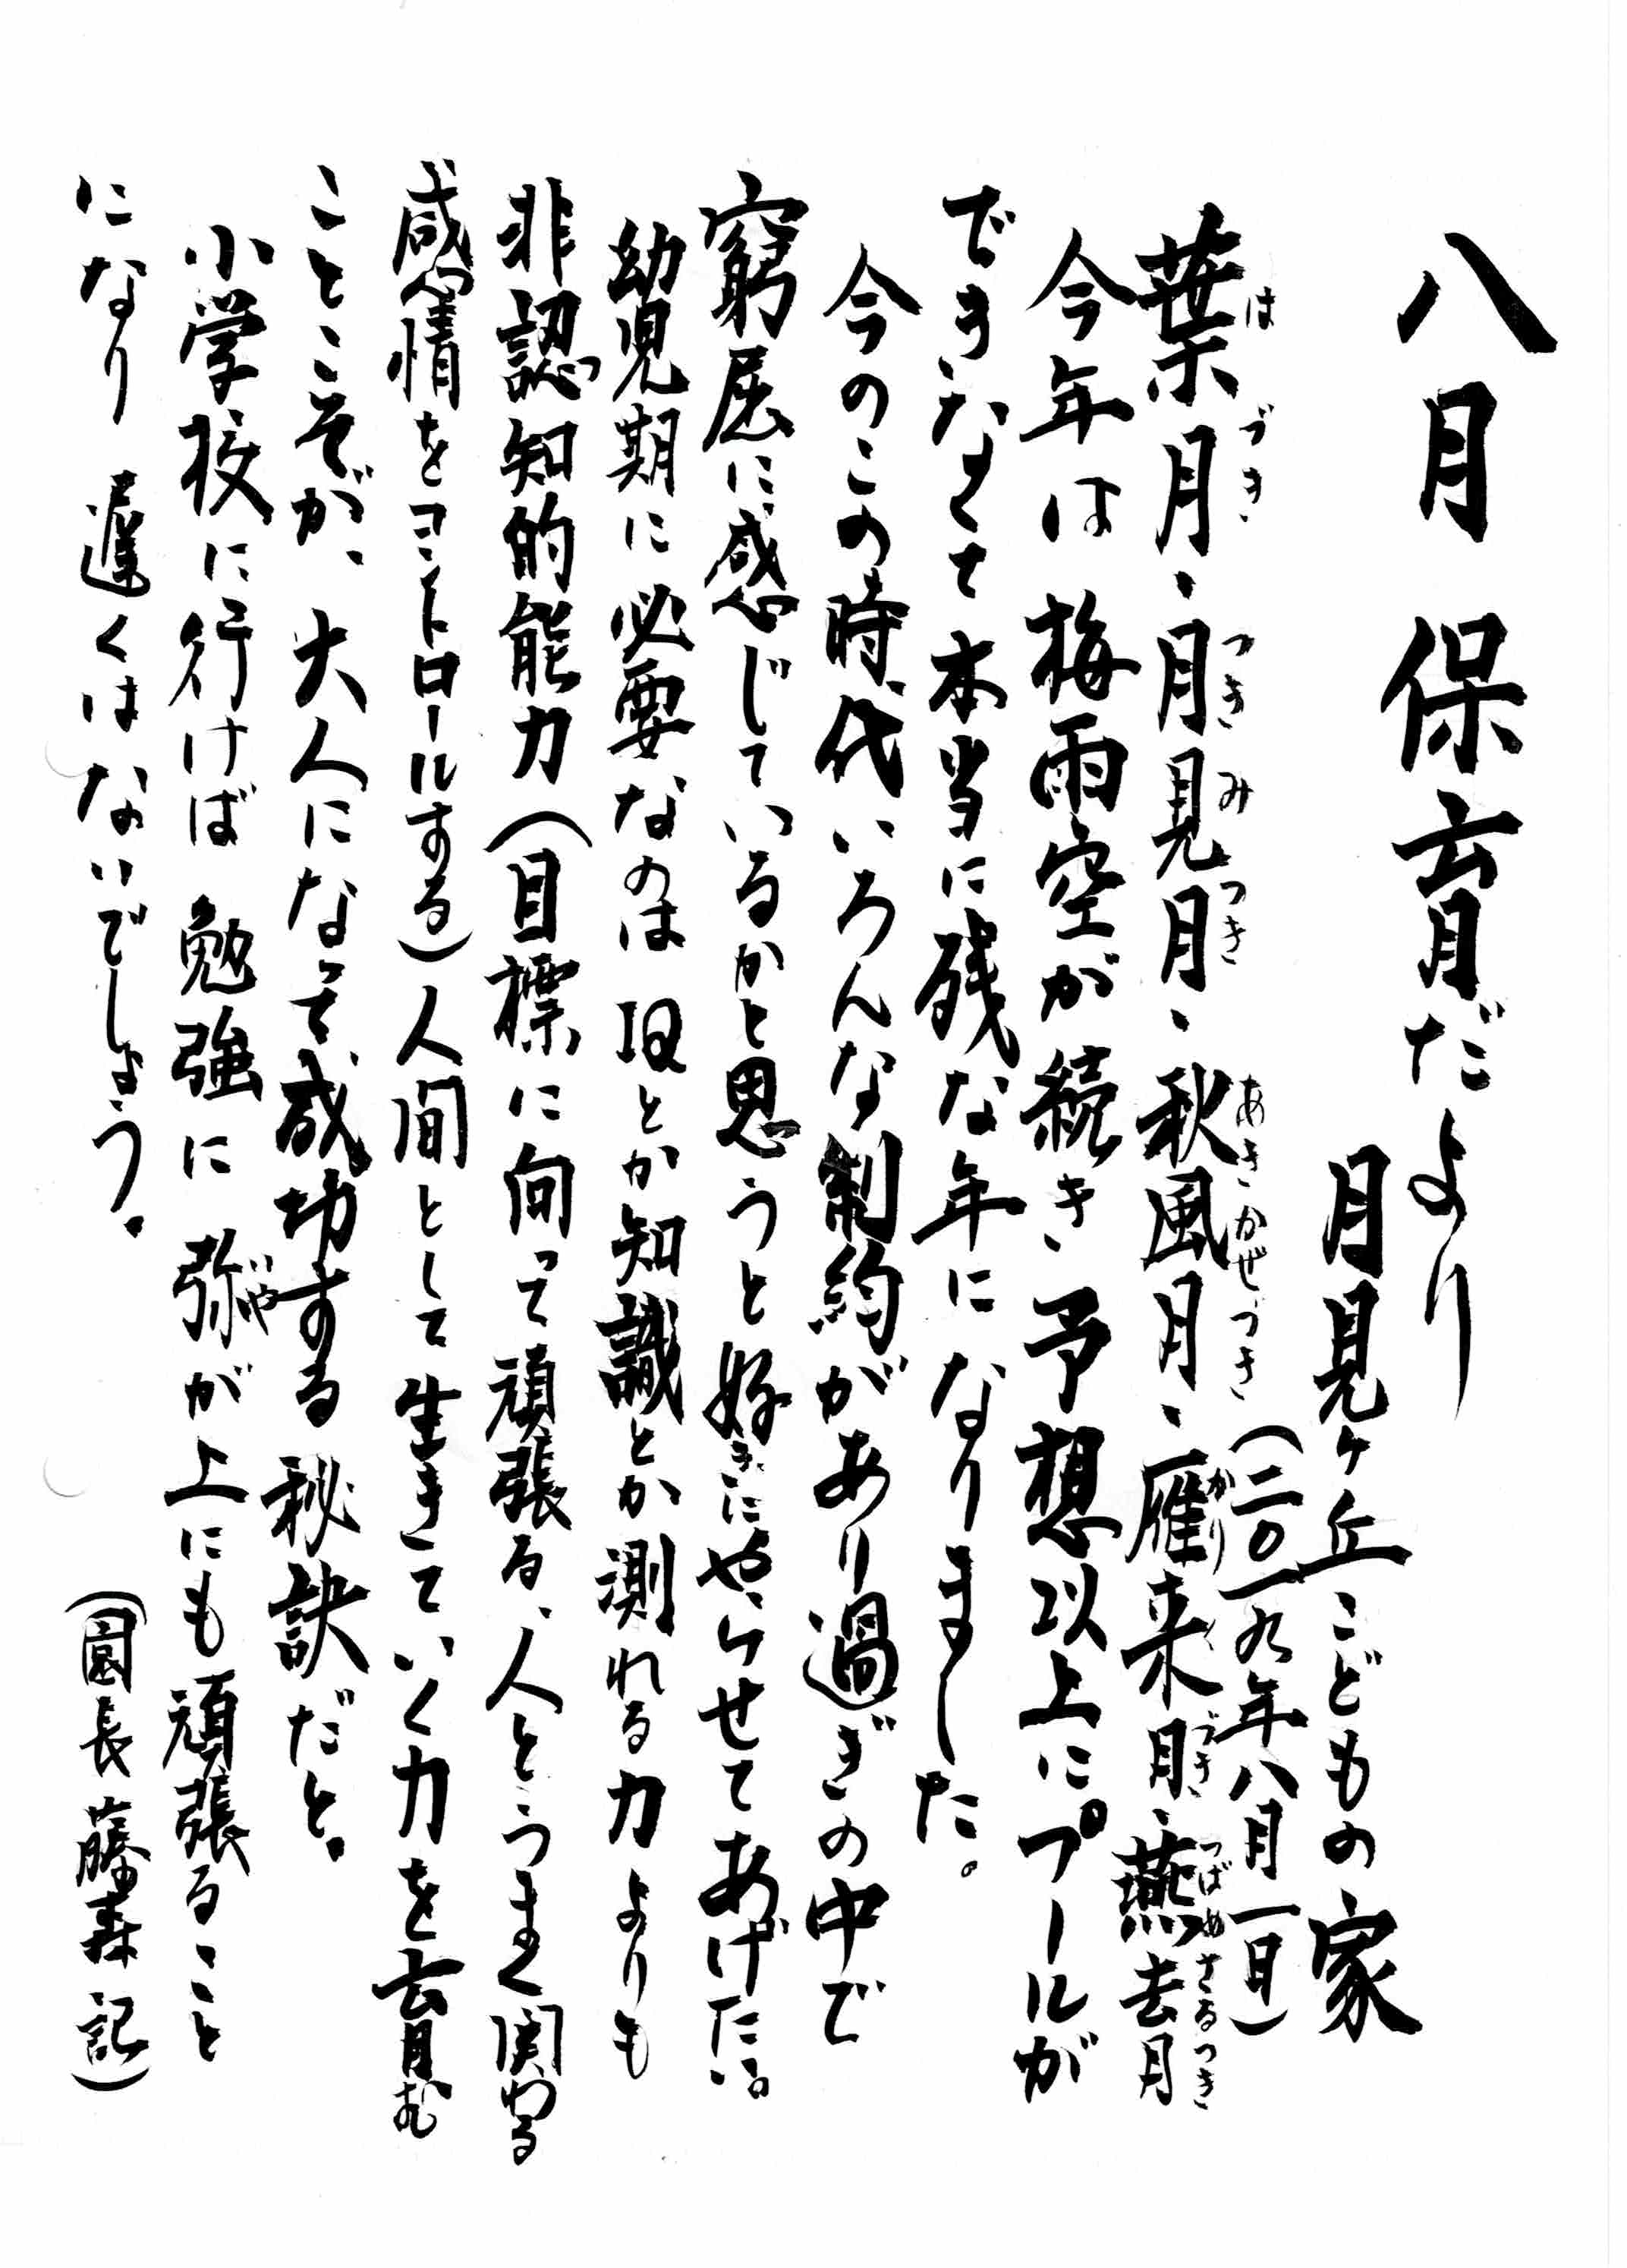 八月 保育だより
月見ヶ丘こどもの家
(二〇一九年八月一日)
葉月、月見月、秋風月、雁来月、燕去月
は づき つき み つき あき かぜ づき かり く づき つばめ さる つき
今年は 梅雨空が続き 予想以上に プールが
できなくて本当に残な年になりました。
今のこの時代いろんな制約があり過ぎの中で
窮屈に感じているかと思うと好きにやらせてあげたい。
幼児期に必要なのは IQとか知識とか測れる力よりも
非認知的能力(目標に向って頑張る、人とうまく関わる
感情をコントロールする)人間として生きていく力を育む
ことこそが、大人になって成功する 秘訣だと。
小学校に行けば 勉強に 弥が上にも頑張ること
いや
になり 遅くはないでしょう。
(園長 藤森 記)